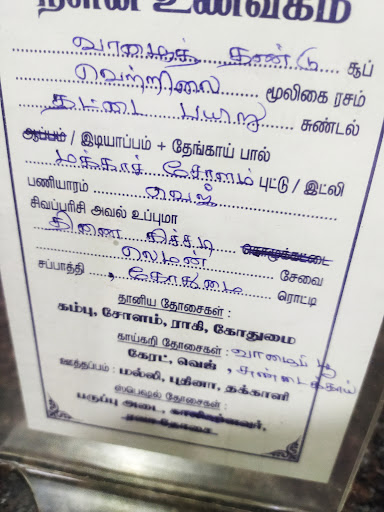 நளன் உணவகம்
வாழைத் தண்டு சூப்
வெற்றிலை மூலிகை ரசம்
தட்டை பயறு சுண்டல்
ஆப்பம் / இடியாப்பம் + தேங்காய் பால்
மக்காச் சோளம் புட்டு / இட்லி
பணியாரம் வெஜ்
சிவப்பரிசி அவல் உப்புமா
தினை கிச்சடி கொழுக்கட்டை
லெமன் சேவை
சப்பாத்தி , கோதுமை ரொட்டி
தானிய தோசைகள் :
கம்பு, சோளம், ராகி, கோதுமை
காய்கறி தோசைகள் : வாழைப் பூ
கேரட், வெஜ் , சுண்டைக்காய்
ஊத்தப்பம் : மல்லி, புதினா, தக்காளி
ஸ்பெஷல் தோசைகள் :
பருப்பு அடை,